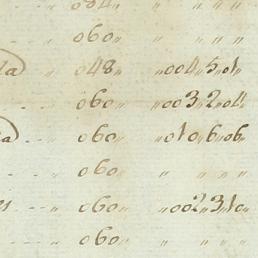 084〃 〃 〃 〃
060〃 〃 〃 〃
la 〃 048〃 〃004〃5〃01〃
〃 060〃 〃003〃2〃04〃
a) --- 〃 060〃 〃010〃6〃06〃
- - 〃 060〃 〃 〃 〃
es - - - 〃 060〃 〃002〃3〃10〃
- - - 〃 060〃 〃 〃 〃